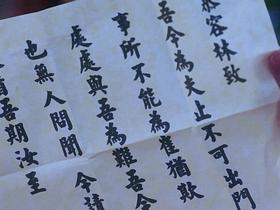 容林致
吾今為夫止不可出門
事所不能為崔猶欺
處處與吾為難吾
也無人問聞 今請
吾期汝王